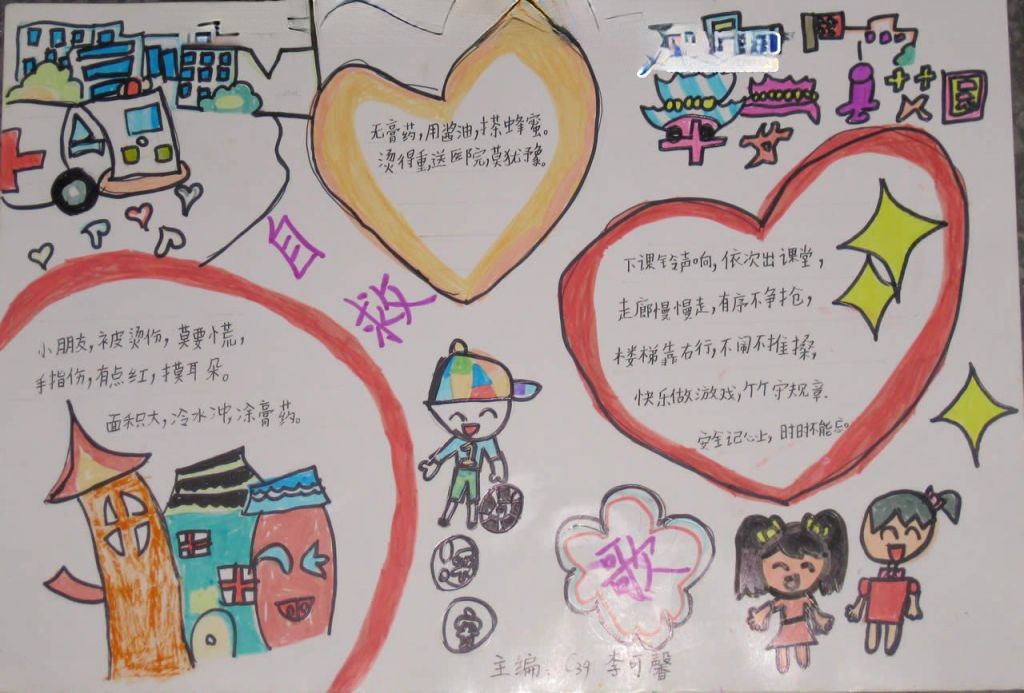 无膏药,用酱油,搽蜂蜜。
烫得重,送医院,莫犹豫。
平安
校园
自
救
下课铃声响,依次出课堂,
走廊慢慢走,有序不争抢,
楼梯靠右行,不闹不推搡,
快乐做游戏,个个守规章.
安全记心上,时时不能忘。
小朋友,被烫伤,莫要慌,
手指伤,有点红,摸耳朵。
面积大,冷水冲,涂膏药。
安
歌
主编:C39 李可馨